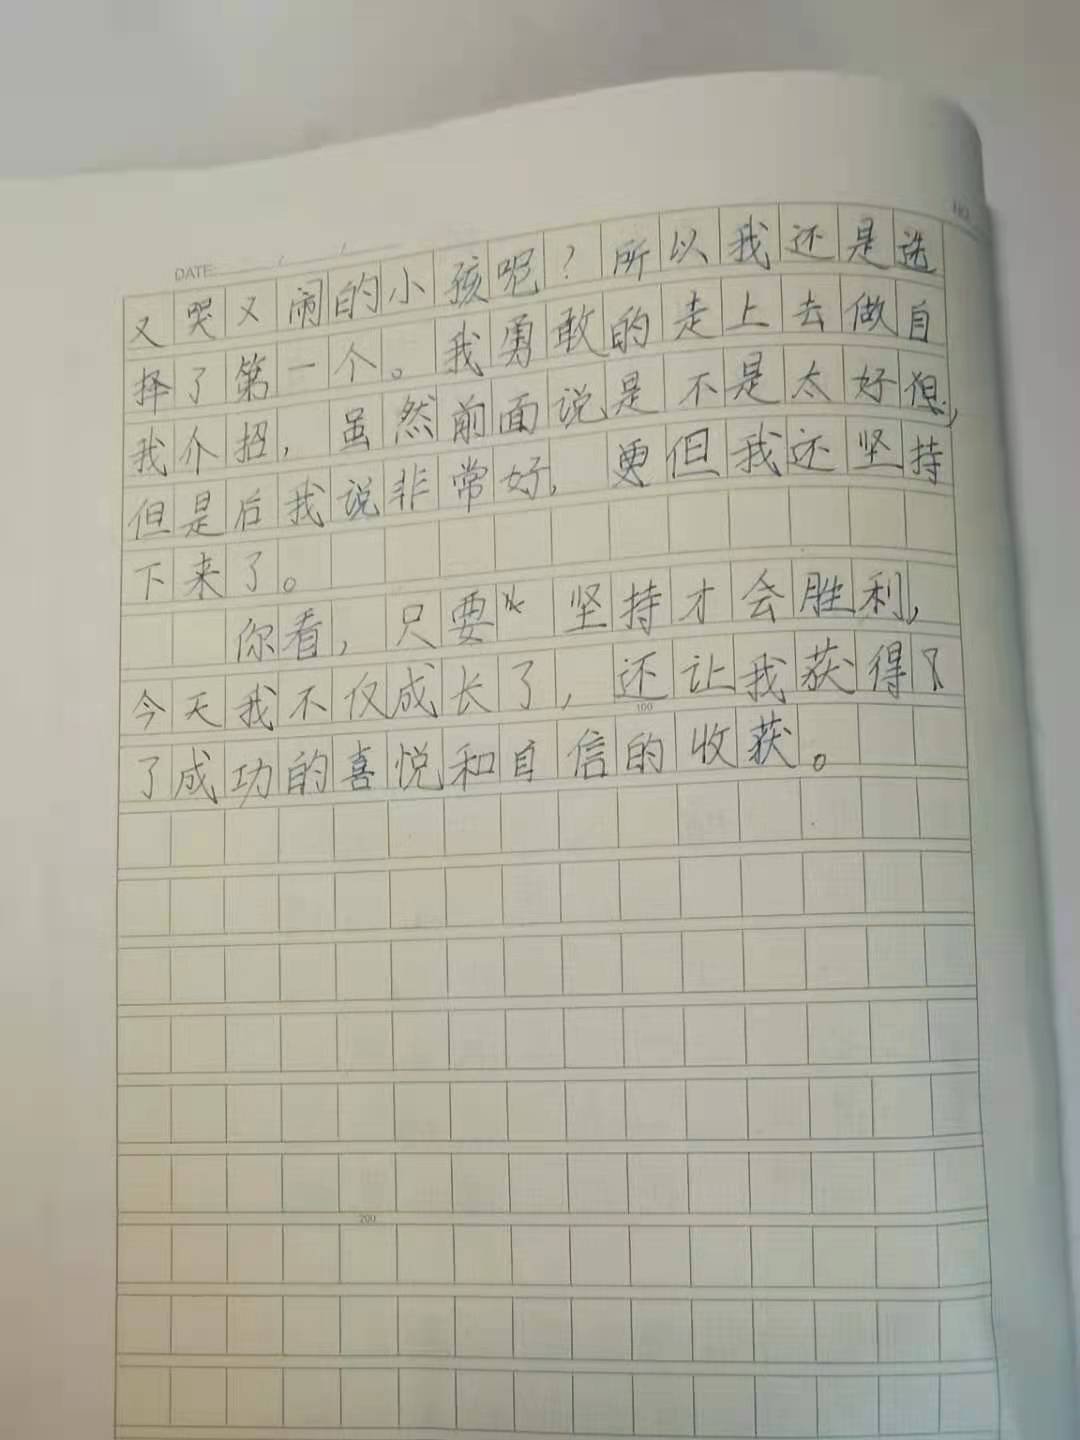 DATE
NO
又哭又闹的小孩呢？所以我还是选
择了第一个。我勇敢的走上去做自
我介招，虽然前面说是不是太好，
但是后我说非常好，更但我还坚持
下来了。
你看，只要坚持才会胜利，
今天我不仅成长了，还让我获得
100
了成功的喜悦和自信的收获。
200